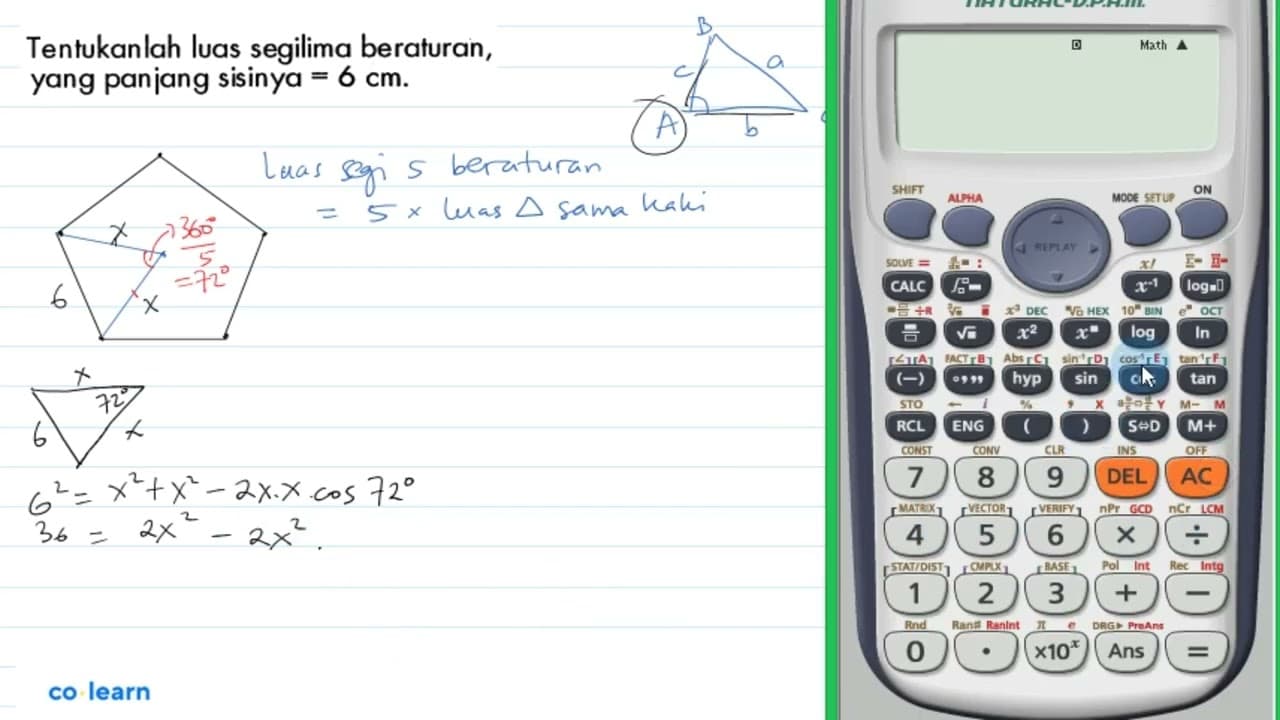 Tentukanlah luas segilima beraturan,
yang panjang sisinya = 6 cm.
B
c
a
A
b
Luas segi 5 beraturan
= 5 × luas △ sama kaki
x
360°
5
= 72°
6
x
x
72°
6
x
6² = x² + x² - 2x.x.cos 72°
36 = 2x² - 2x².
co learn
NATURAL-V.P.A.M.
D Math ▲
SHIFT ALPHA MODE SETUP ON
REPLAY
SOLVE = : x!
CALC x⁻¹ log
÷R x³ DEC HEX 10 BIN e OCT
x² log ln
A FACT B Abs C sin⁻¹ D cos⁻¹ E tan⁻¹ F
(−) °,,, hyp sin cos tan
STO ← i % , X Y M− M
RCL ENG ( ) S⇔D M+
CONST CONV CLR INS OFF
7 8 9 DEL AC
MATRIX VECTOR VERIFY nPr GCD nCr LCM
4 5 6 × ÷
STAT/DIST CMPLX BASE Pol Int Rec Intg
1 2 3 + −
Rnd Ran# RanInt π e DRG▶ PreAns
0 . ×10ˣ Ans =